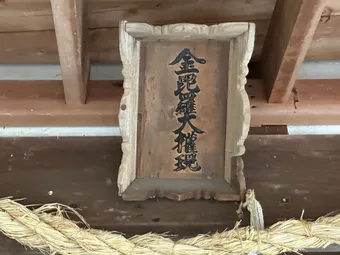 金毘羅大権現